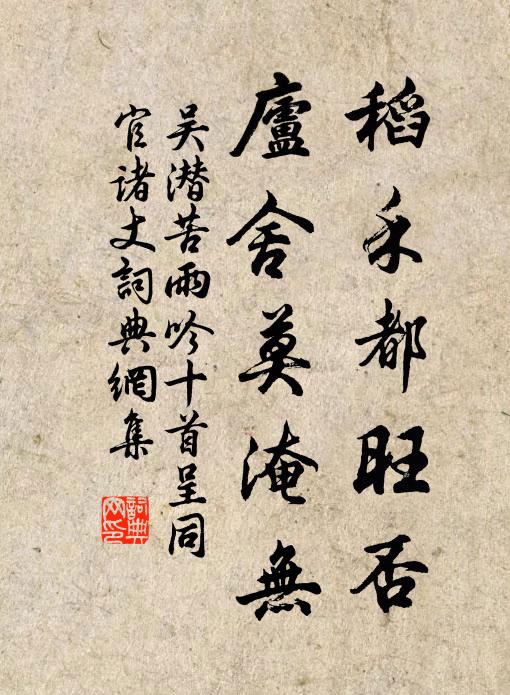 稻禾都旺否
廬舍莫淹無
吳潛苦雨吟十首呈同
官諸丈詞典網集
詞典网印